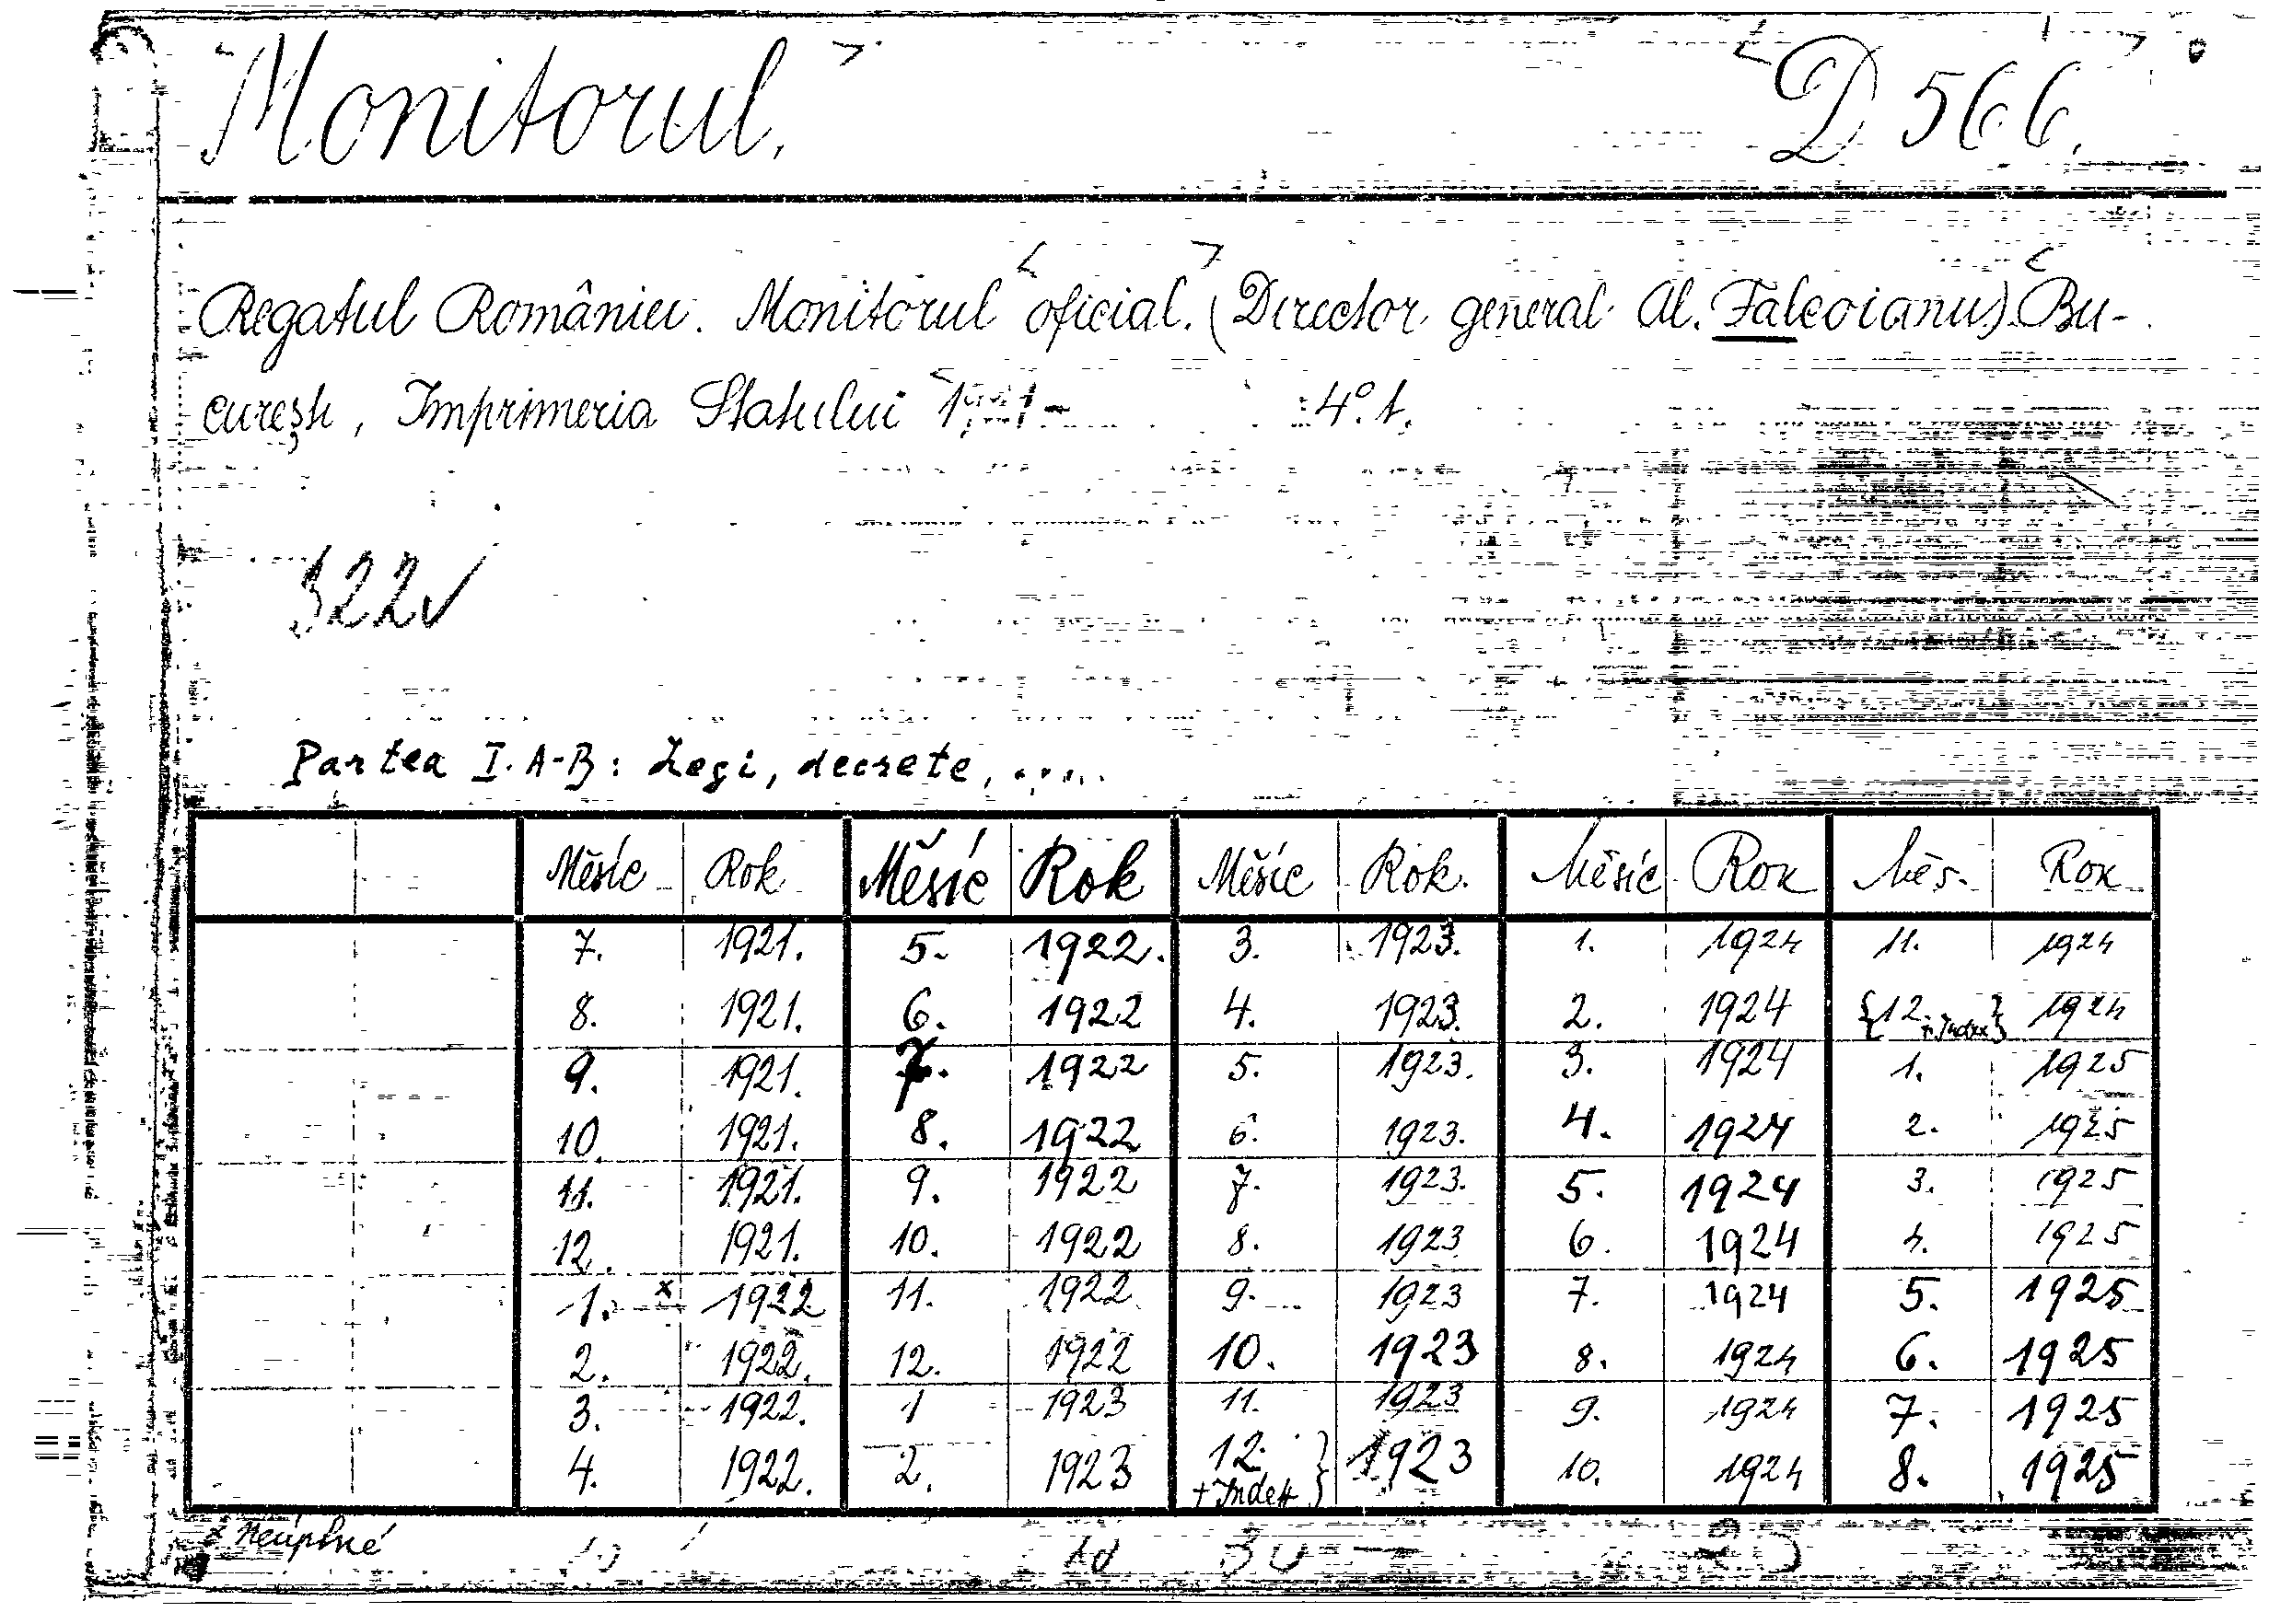 Monitorul, D 566.
Regatul României. Monitorul oficial. (Director general Al. Falcoianu). Bu-
curești, Imprimeria Statului 1921- 4°. 1.
322√
Partea I. A-B: Legi, decrete, .....
Měsíc Rok Měsíc Rok Měsíc Rok. Měsíc Rok Měs. Rok
7. 1921. 5. 1922. 3. 1923. 1. 1924 11. 1924
8. 1921. 6. 1922 4. 1923. 2. 1924 {12. + Index} 1924
9. 1921. 7. 1922 5. 1923. 3. 1924 1. 1925
10. 1921. 8. 1922 6. 1923. 4. 1924 2. 1925
11. 1921. 9. 1922 7. 1923. 5. 1924 3. 1925
12. 1921. 10. 1922 8. 1923 6. 1924 4. 1925
1. x 1922 11. 1922 9. 1923 7. 1924 5. 1925
2. 1922. 12. 1922 10. 1923 8. 1924 6. 1925
3. 1922. 1 1923 11. 1923 9. 1924 7. 1925
4. 1922. 2. 1923 12. + Index } 1923 10. 1924 8. 1925
x neúplné